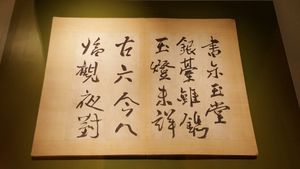 書亦玉堂
銀臺雖鐫
玉燈未詳
古六今八
觀夜對